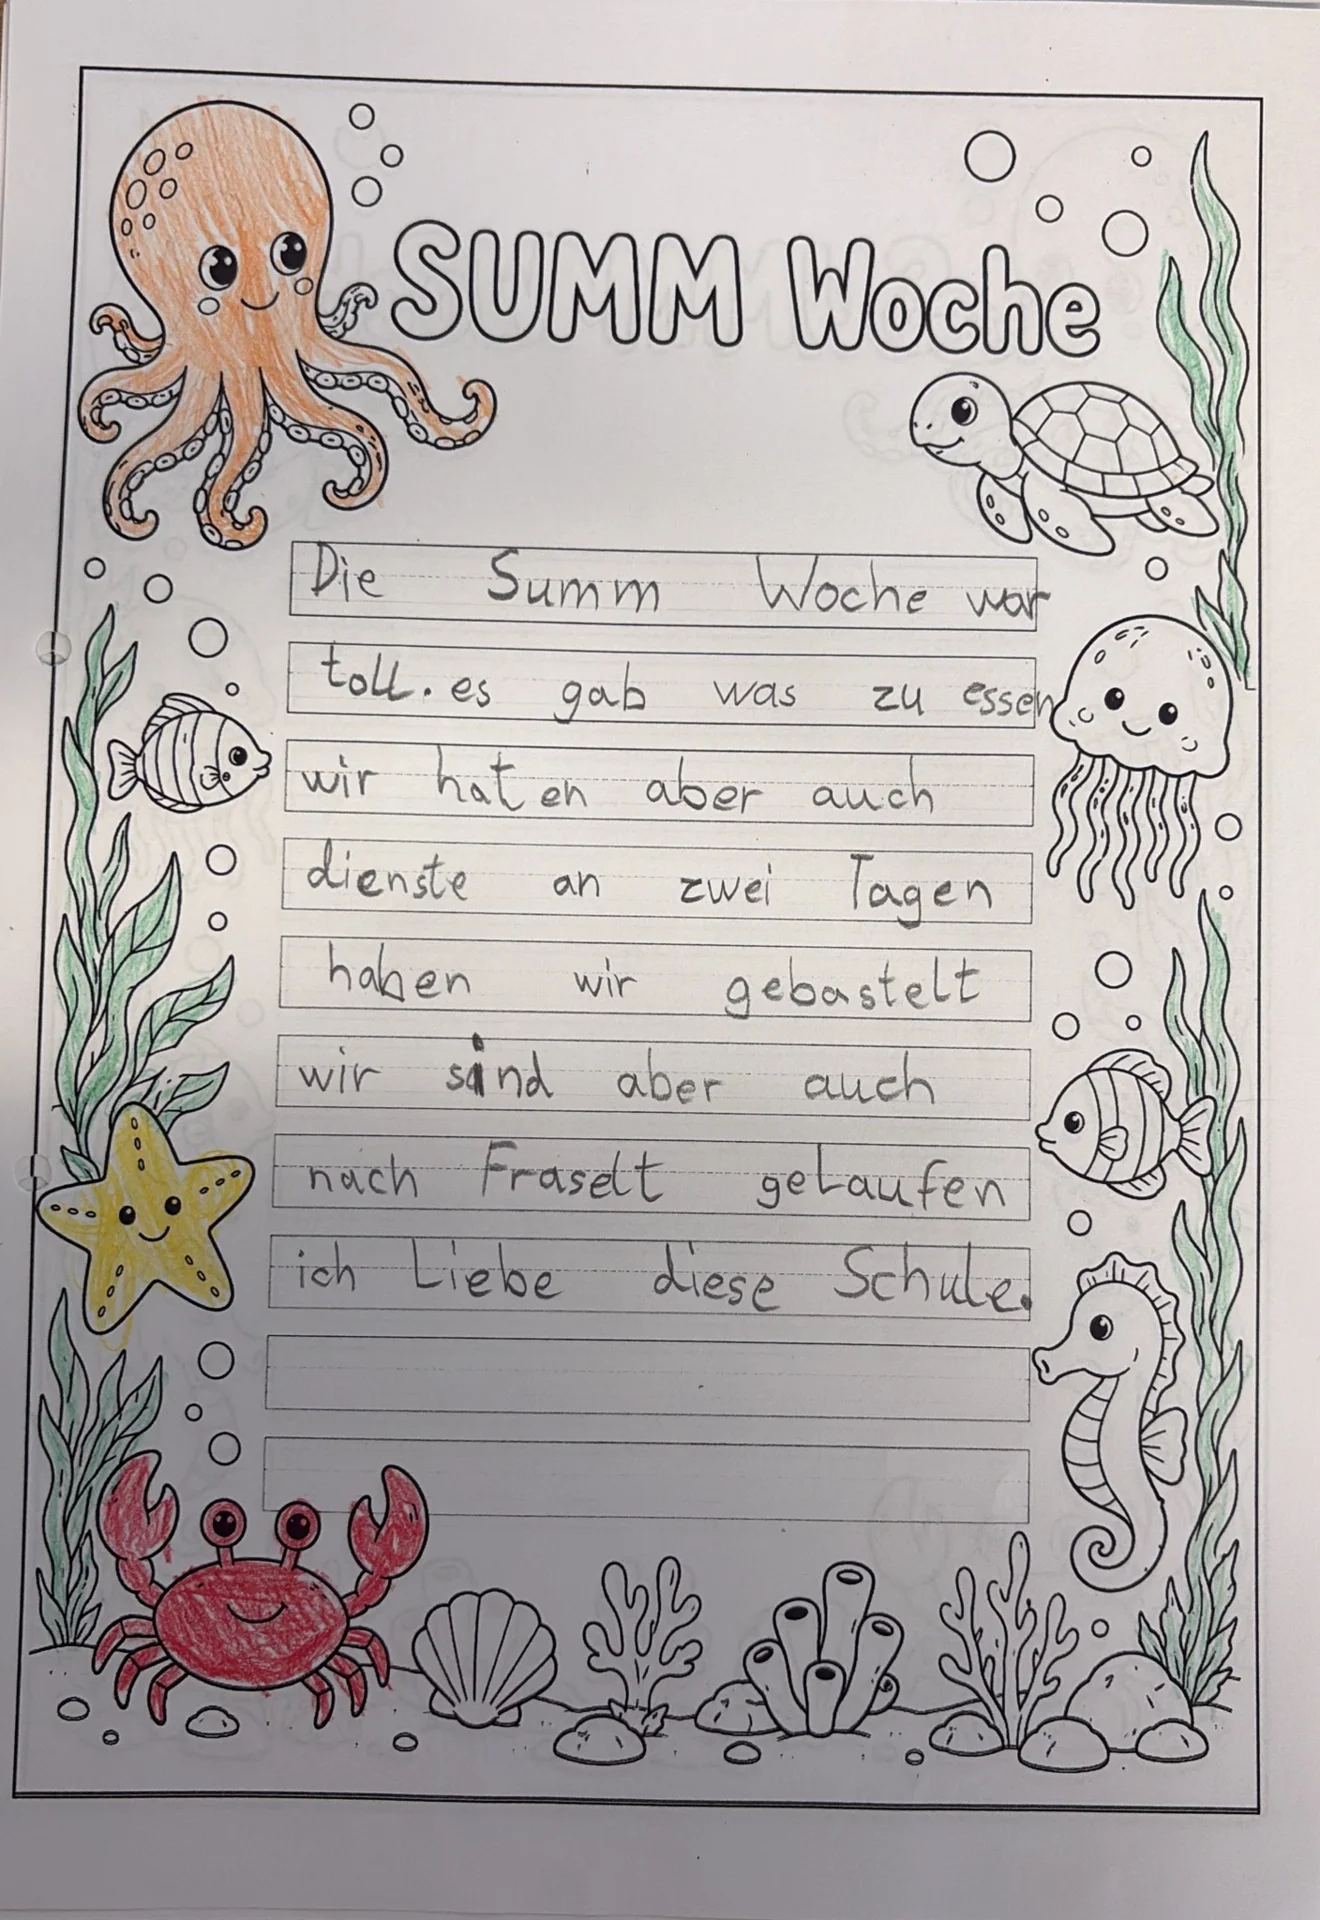 SUMM Woche
Die Summ Woche war
toll. es gab was zu essen
wir haten aber auch
dienste an zwei Tagen
haben wir gebastelt
wir sind aber auch
nach Fraselt gelaufen
ich Liebe diese Schule.